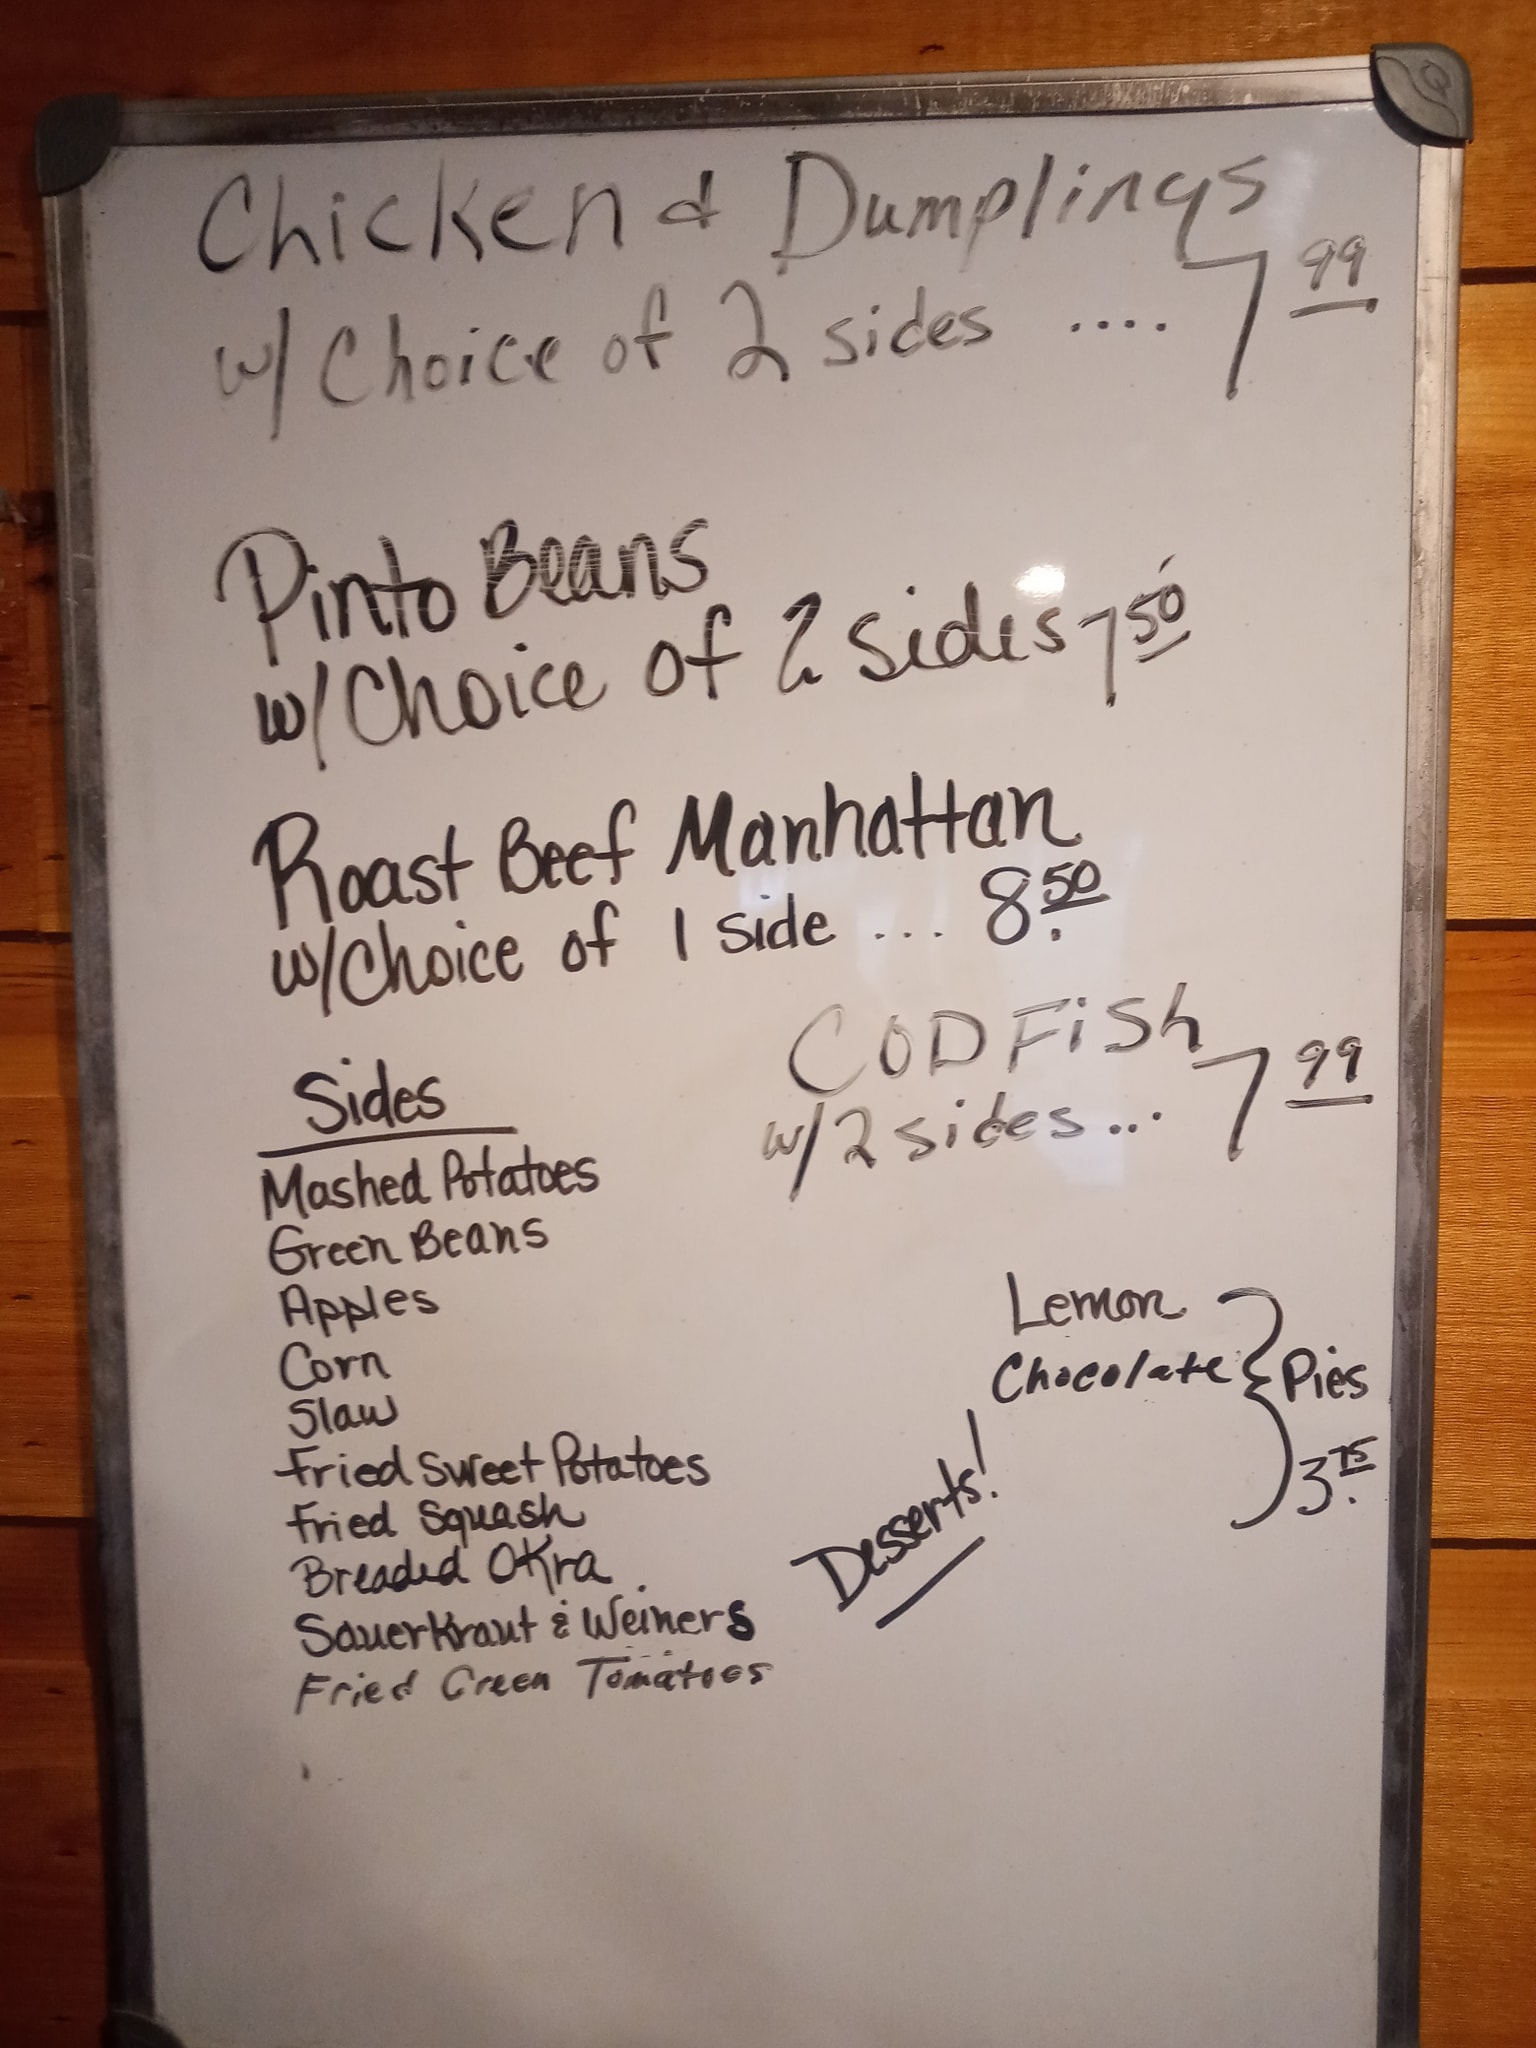 Chicken & Dumplings
w/ Choice of 2 sides .... 7 99
Pinto Beans
w/ Choice of 2 sides 7 50
Roast Beef Manhattan
w/ Choice of 1 side ... 8.50
COD Fish
w/ 2 sides ... 7 99
Sides
Mashed Potatoes
Green Beans
Apples
Corn
Slaw
Fried Sweet Potatoes
Fried Squash
Breaded Okra
Sauerkraut & Weiners
Fried Green Tomatoes
Lemon
Chocolate } Pies
3.75
Desserts!